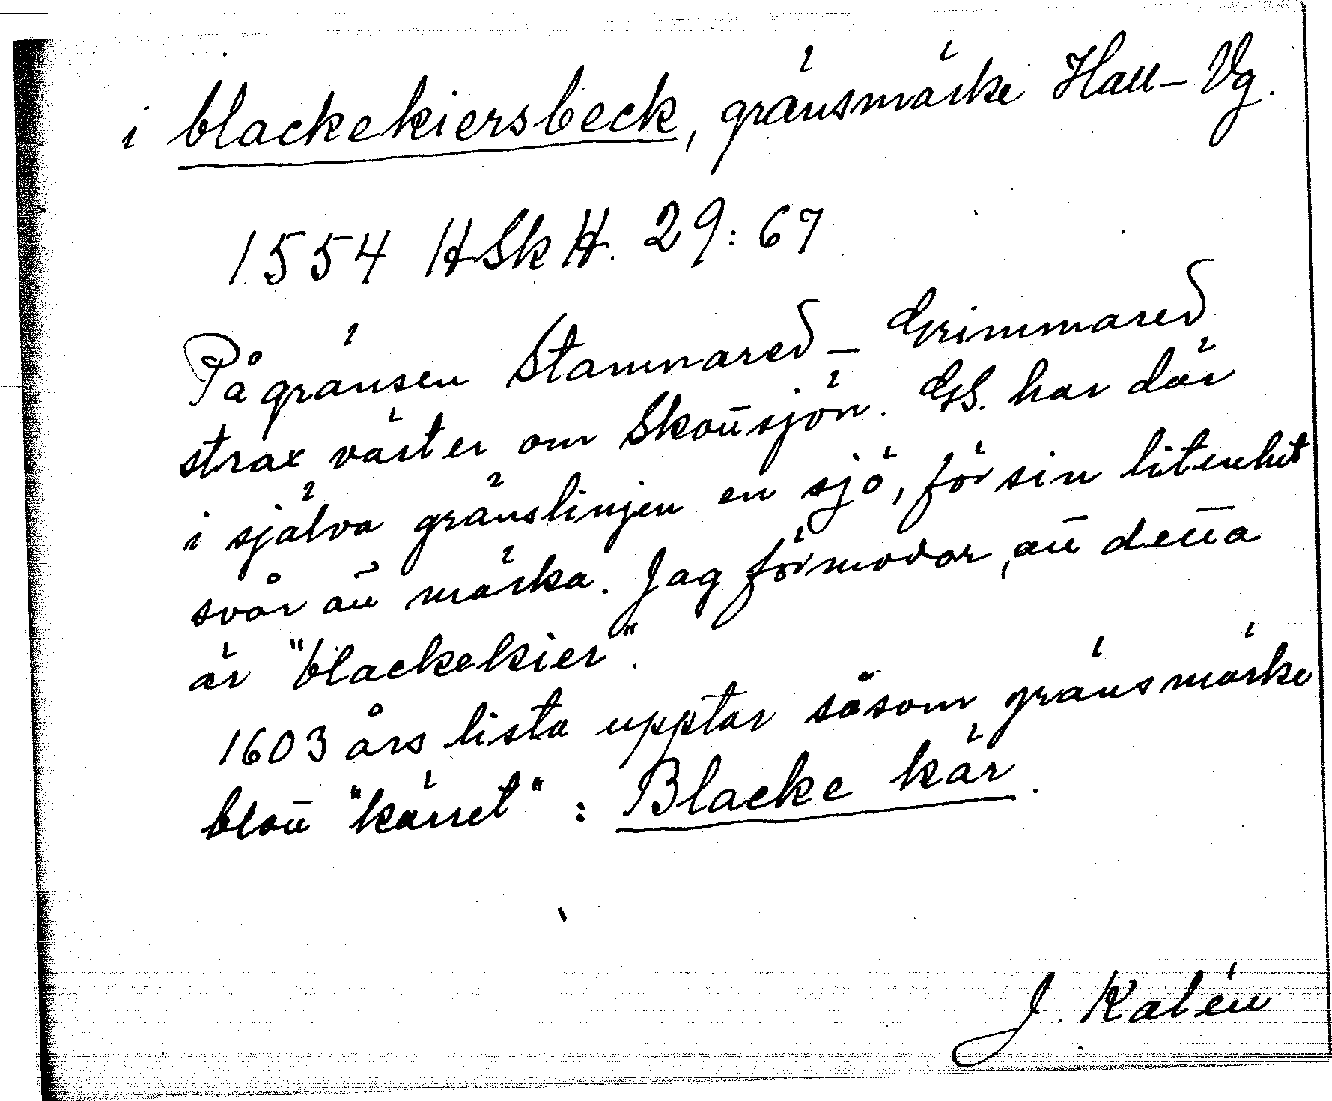 i blackekiersbeck, gränsmärke Hall–Vg.
1554 HSkH. 29:67
På gränsen Stamnared – Grimmared
strax väster om Skottsjön. GS. har där
i själva gränslinjen en sjö, för sin litenhet
svår att märka. Jag förmodar, att detta
är "blackekier".
1603 års lista upptar såsom gränsmärke
blott "kärret" : Blacke kär.
J. Kalén